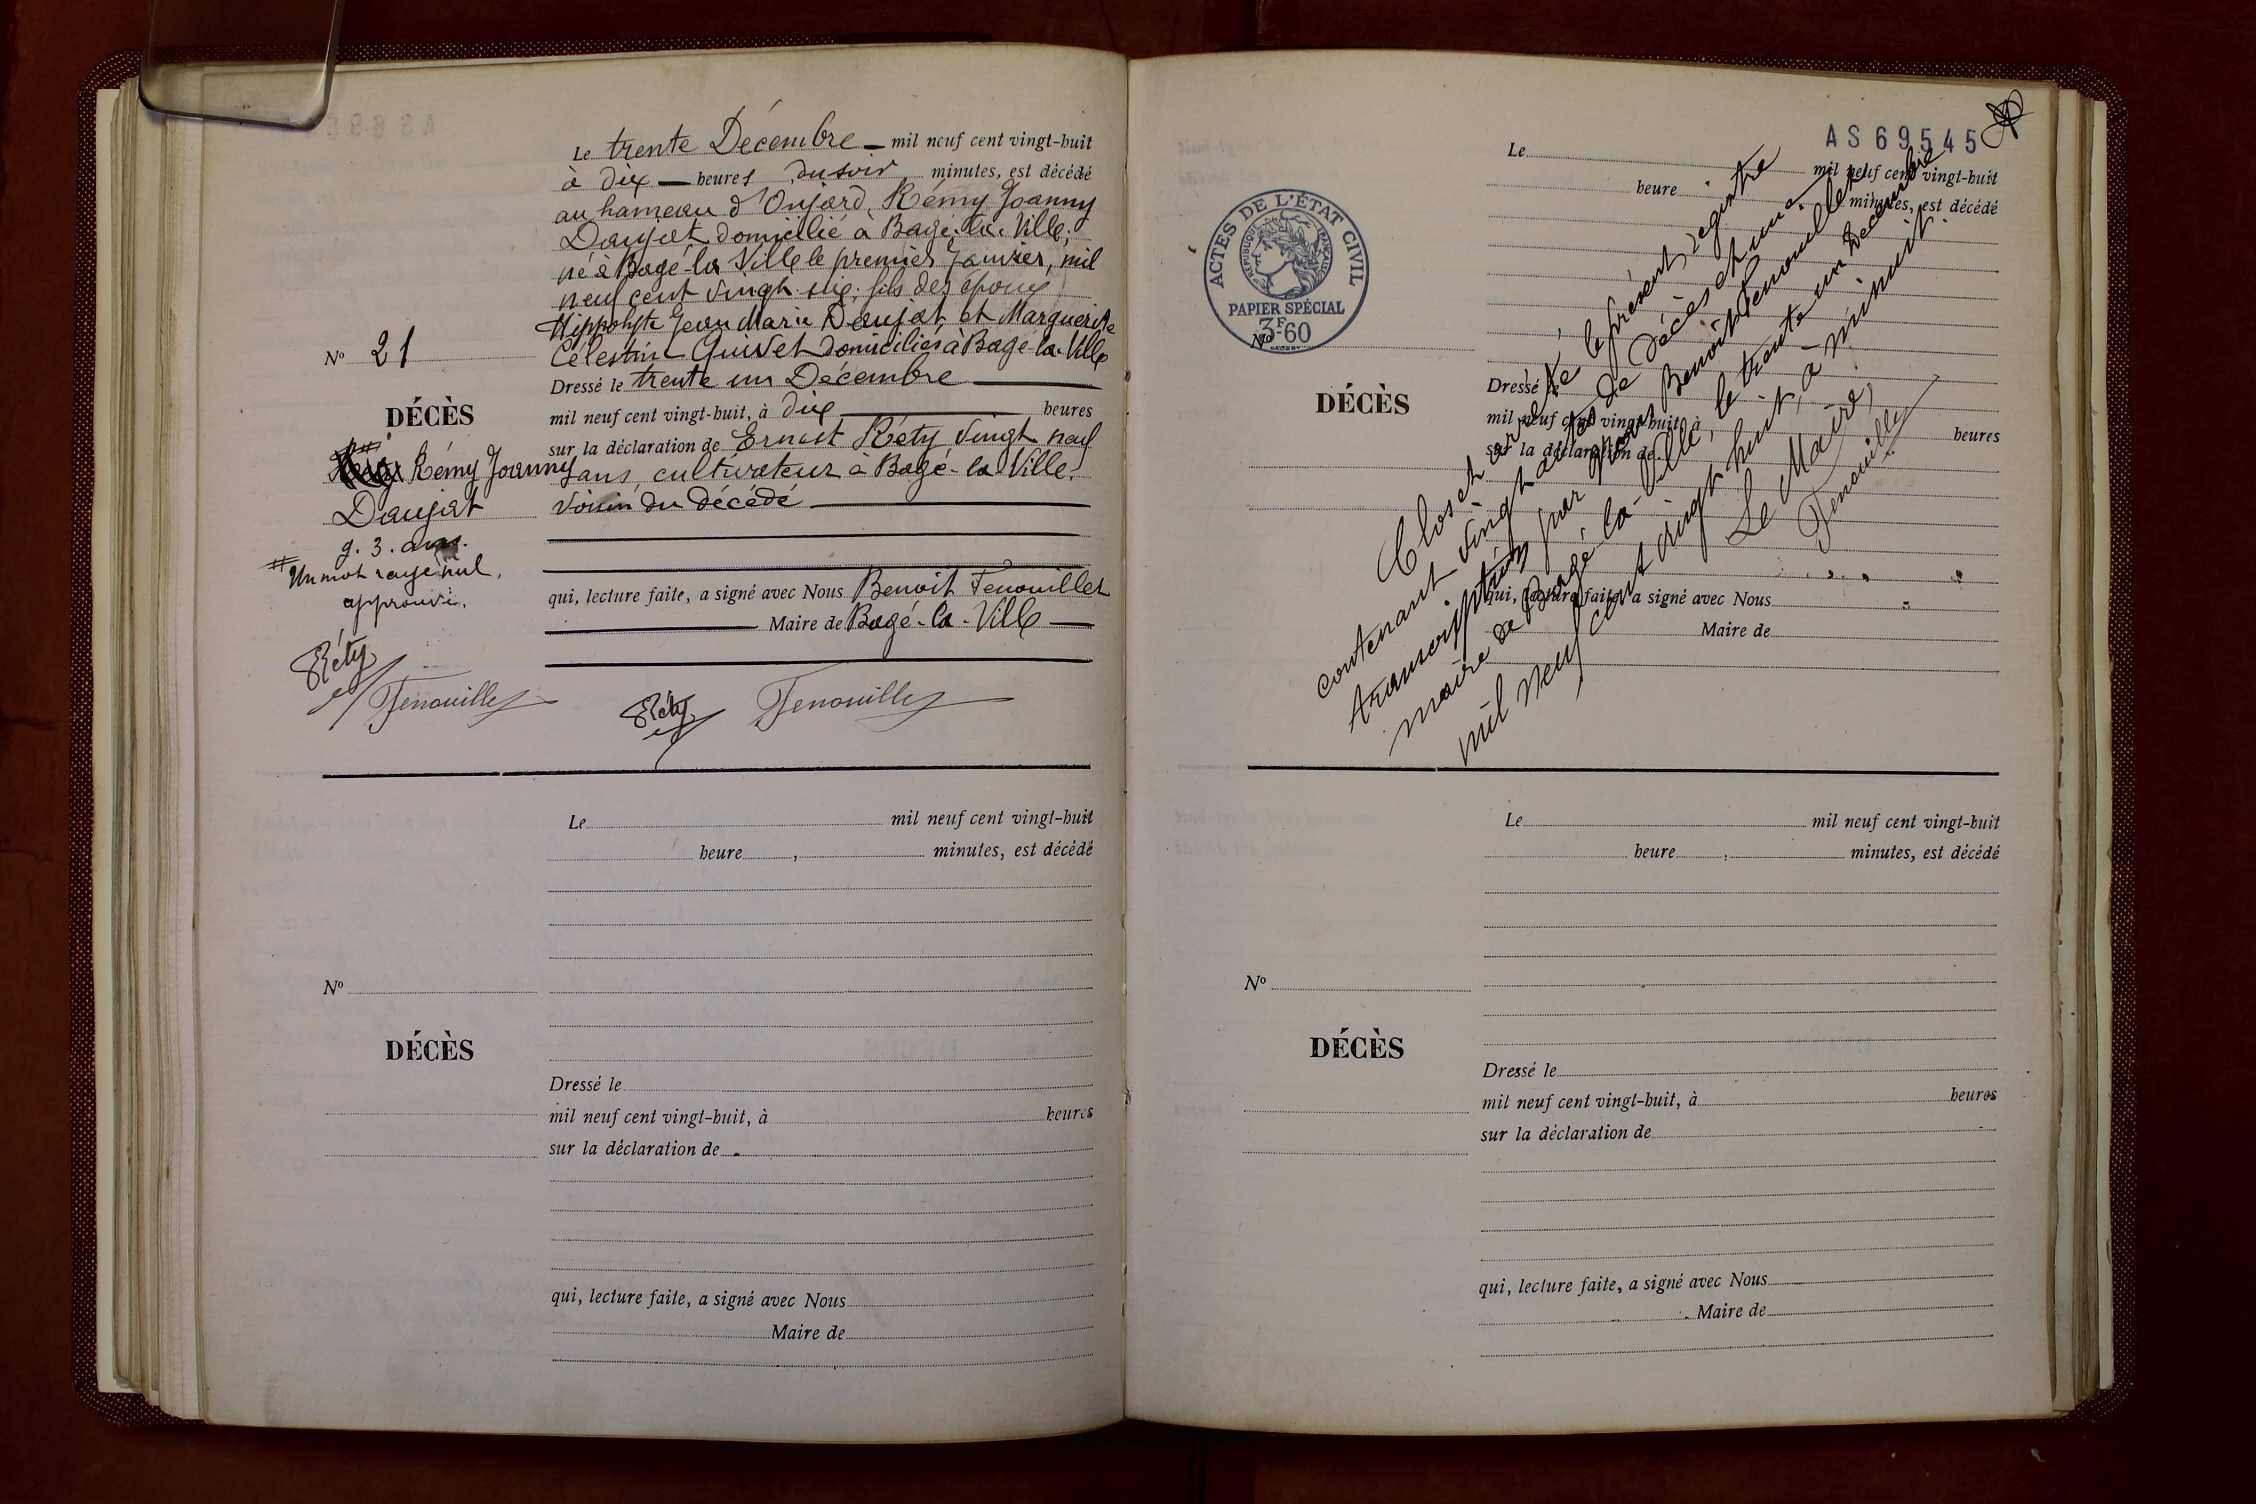 Le trente Décembre — mil neuf cent vingt-huit
à dix — heures du soir minutes, est décédé
au hameau d'Onjard, Rémy Joanny
Daujat domicilié à Bagé-la-Ville,
né à Bagé-la Ville le premier Janvier, mil
neuf cent vingt six, fils des époux
Hippolyte Jean Marie Daujat et Marguerite
Célestine Guivet domiciliés à Bagé-la-Ville
Dressé le trente un Décembre
mil neuf cent vingt-huit, à dix heures
sur la déclaration de Ernest Réty vingt neuf
ans, cultivateur à Bagé-la-Ville.
voisin du décédé
qui, lecture faite, a signé avec Nous Benoit Fenouillet
Maire de Bagé-la-Ville
Réty Fenouillet
No 21
DÉCÈS
#
Rémy Joanny
Daujat
g. 3. ans.
# Un mot rayé nul,
approuvé.
Réty
Fenouillet
Le mil neuf cent vingt-huit
heure , minutes, est décédé
No
DÉCÈS
Dressé le
mil neuf cent vingt-huit, à heures
sur la déclaration de
qui, lecture faite, a signé avec Nous
Maire de
AS 69545
ACTES DE L'ÉTAT CIVIL
RÉPUBLIQUE FRANÇAISE
PAPIER SPÉCIAL
3F.60
Le mil neuf cent vingt-huit
heure minutes, est décédé
No
DÉCÈS
Dressé le
mil neuf cent vingt-huit, à heures
sur la déclaration de
qui, lecture faite, a signé avec Nous
Maire de
Clos et arrêté le présent registre
contenant vingt actes de Décès et une
transcription par nous Benoît Fenouillet
maire de Bagé-la-Ville, le trente un Décembre
mil neuf cent vingt huit, à minuit.
Le Maire,
Fenouillet
Le mil neuf cent vingt-huit
heure , minutes, est décédé
No
DÉCÈS
Dressé le
mil neuf cent vingt-huit, à heures
sur la déclaration de
qui, lecture faite, a signé avec Nous
Maire de